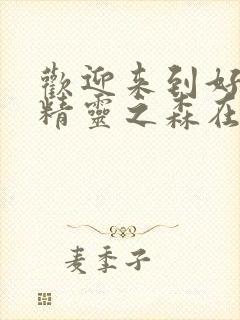 歡迎来到好
精靈之森在
麦季子